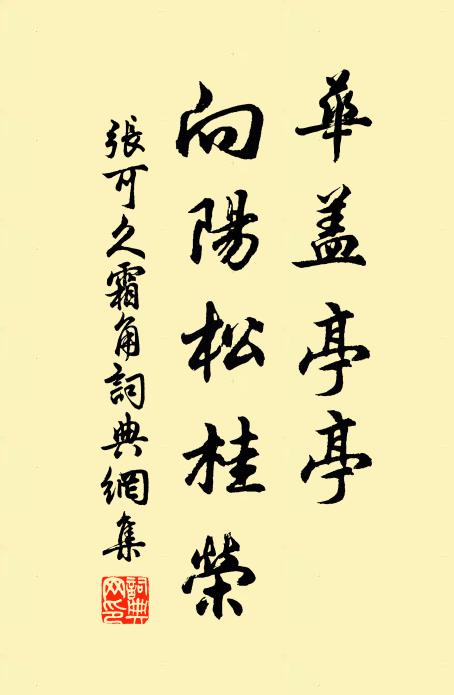 華盖亭亭
向陽松桂榮
張可久霜角詞典網集
詞典网印